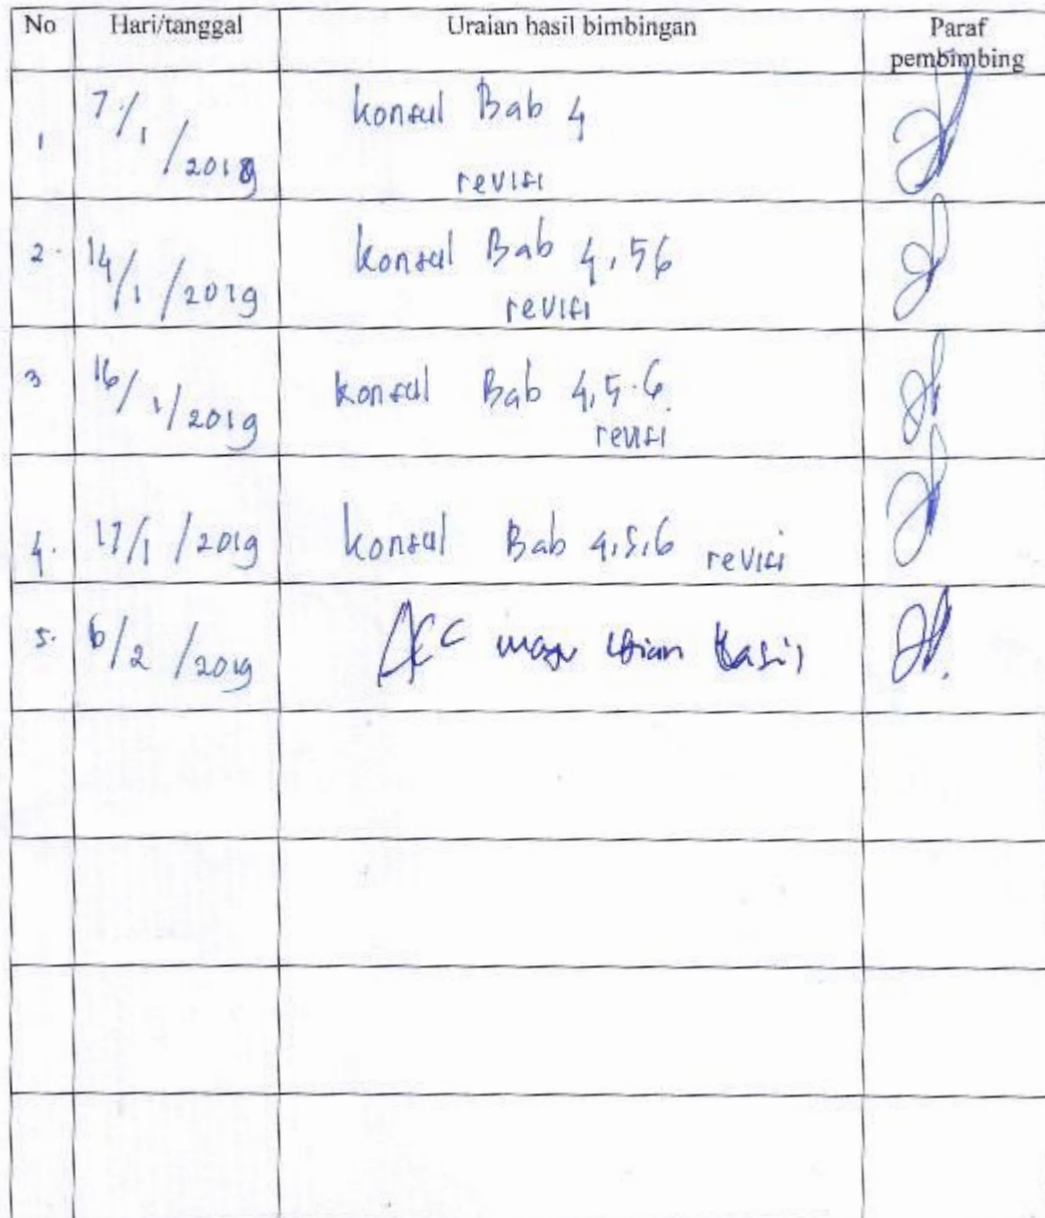 No Hari/tanggal Uraian hasil bimbingan Paraf
pembimbing
1 7/1/2019 konsul Bab 4
revisi
2. 14/1/2019 konsul Bab 4,56
revisi
3 16/1/2019 konsul Bab 4,5.6
revisi
4. 17/1/2019 konsul Bab 4,5,6 revisi
5. 6/2/2019 ACC maju Ujian Hasil